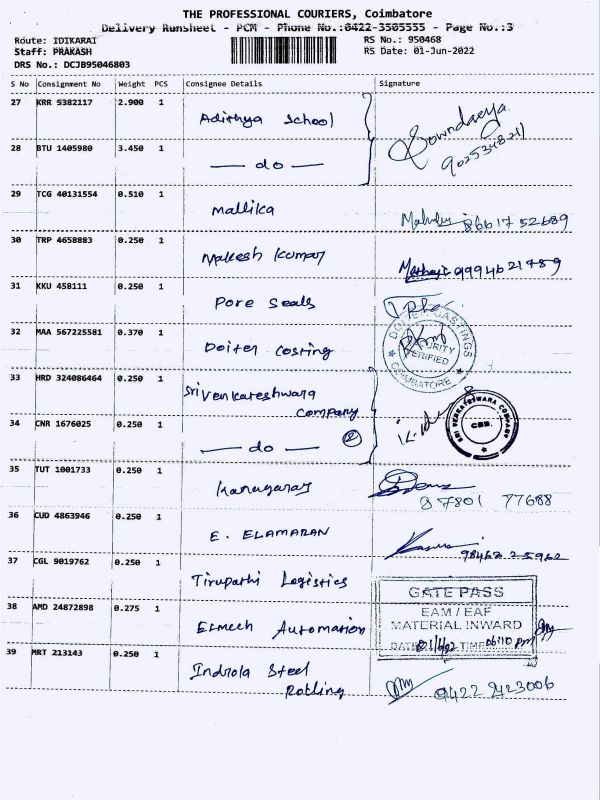 THE PROFESSIONAL COURIERS, Coimbatore
Delivery Runsheet - PCM - Phone No.:0422-3505555 - Page No.:3
Route: IDIKARAI
RS No.: 950468
Staff: PRAKASH
RS Date: 01-Jun-2022
DRS No.: DCJB95046803
S No Consignment No Weight PCS Consignee Details Signature
27 KRR 5382117 2.900 1 Adithya School
Sowndarya
28 BTU 1405980 3.450 1 — do —
29 TCG 40131554 0.510 1 Mallika
86617 52689
30 TRP 4658883 0.250 1 Makesh Kumar
9994621789
31 KKU 458111 0.250 1 Pore Seals
32 MAA 567225581 0.370 1 Doiter Costing
SECURITY
VERIFIED
COIMBATORE
33 HRD 324086464 0.250 1 Sri Venkateshwara
Company
SRI VENKATESHWARA COMPANY
CBE.
34 CNR 1676025 0.250 1 — do — 2
35 TUT 1001733 0.250 1 Kanagaraj
87801 77688
36 CUD 4863946 0.250 1 E. ELAMARAN
98468 25962
37 CGL 9019762 0.250 1 Tirupathi Logistics
GATE PASS
EAM / EAF
MATERIAL INWARD
DATE TIME 06:10 pm
38 AMD 24872898 0.275 1 Elmech Automation
39 MRT 213143 0.250 1 Indrola Steel
Rolling
9422 2423006